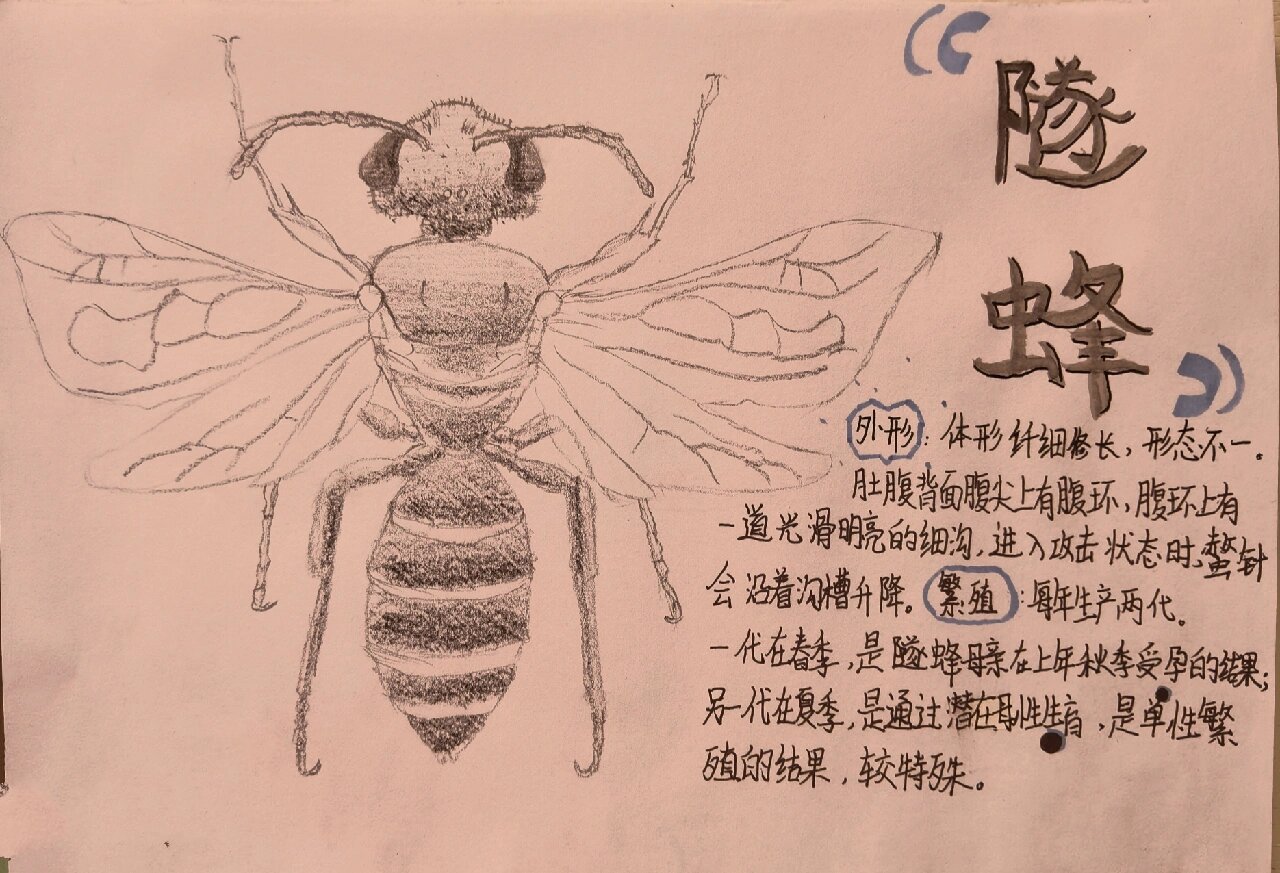 “隧
蜂”
外形：体形纤细修长，形态不一.
肚腹背面腹尖上有腹环，腹环上有
一道光滑明亮的细沟，进入攻击状态时，螫针
会沿着沟槽升降。繁殖：每年生产两代。
一代在春季，是隧蜂母亲在上年秋季受孕的结果；
另一代在夏季，是通过潜在母性生育，是单性繁
殖的结果，较特殊。